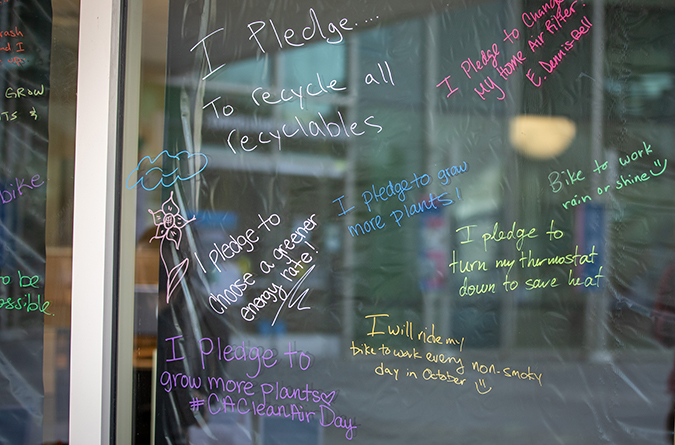 rash
nd I
GROW
TS &
bike
o be
ossible.
I Pledge....
To recycle all
recyclables
I Pledge to Change
my home Air Filter
E. Dennis-Bell
Bike to work
rain or shine
I pledge to grow
more plants!
I pledge to
choose a greener
energy rate!
I pledge to
turn my thermostat
down to save heat
I will ride my
bike to work every non-smoky
day in October
I Pledge to
grow more plants
#CACleanAirDay